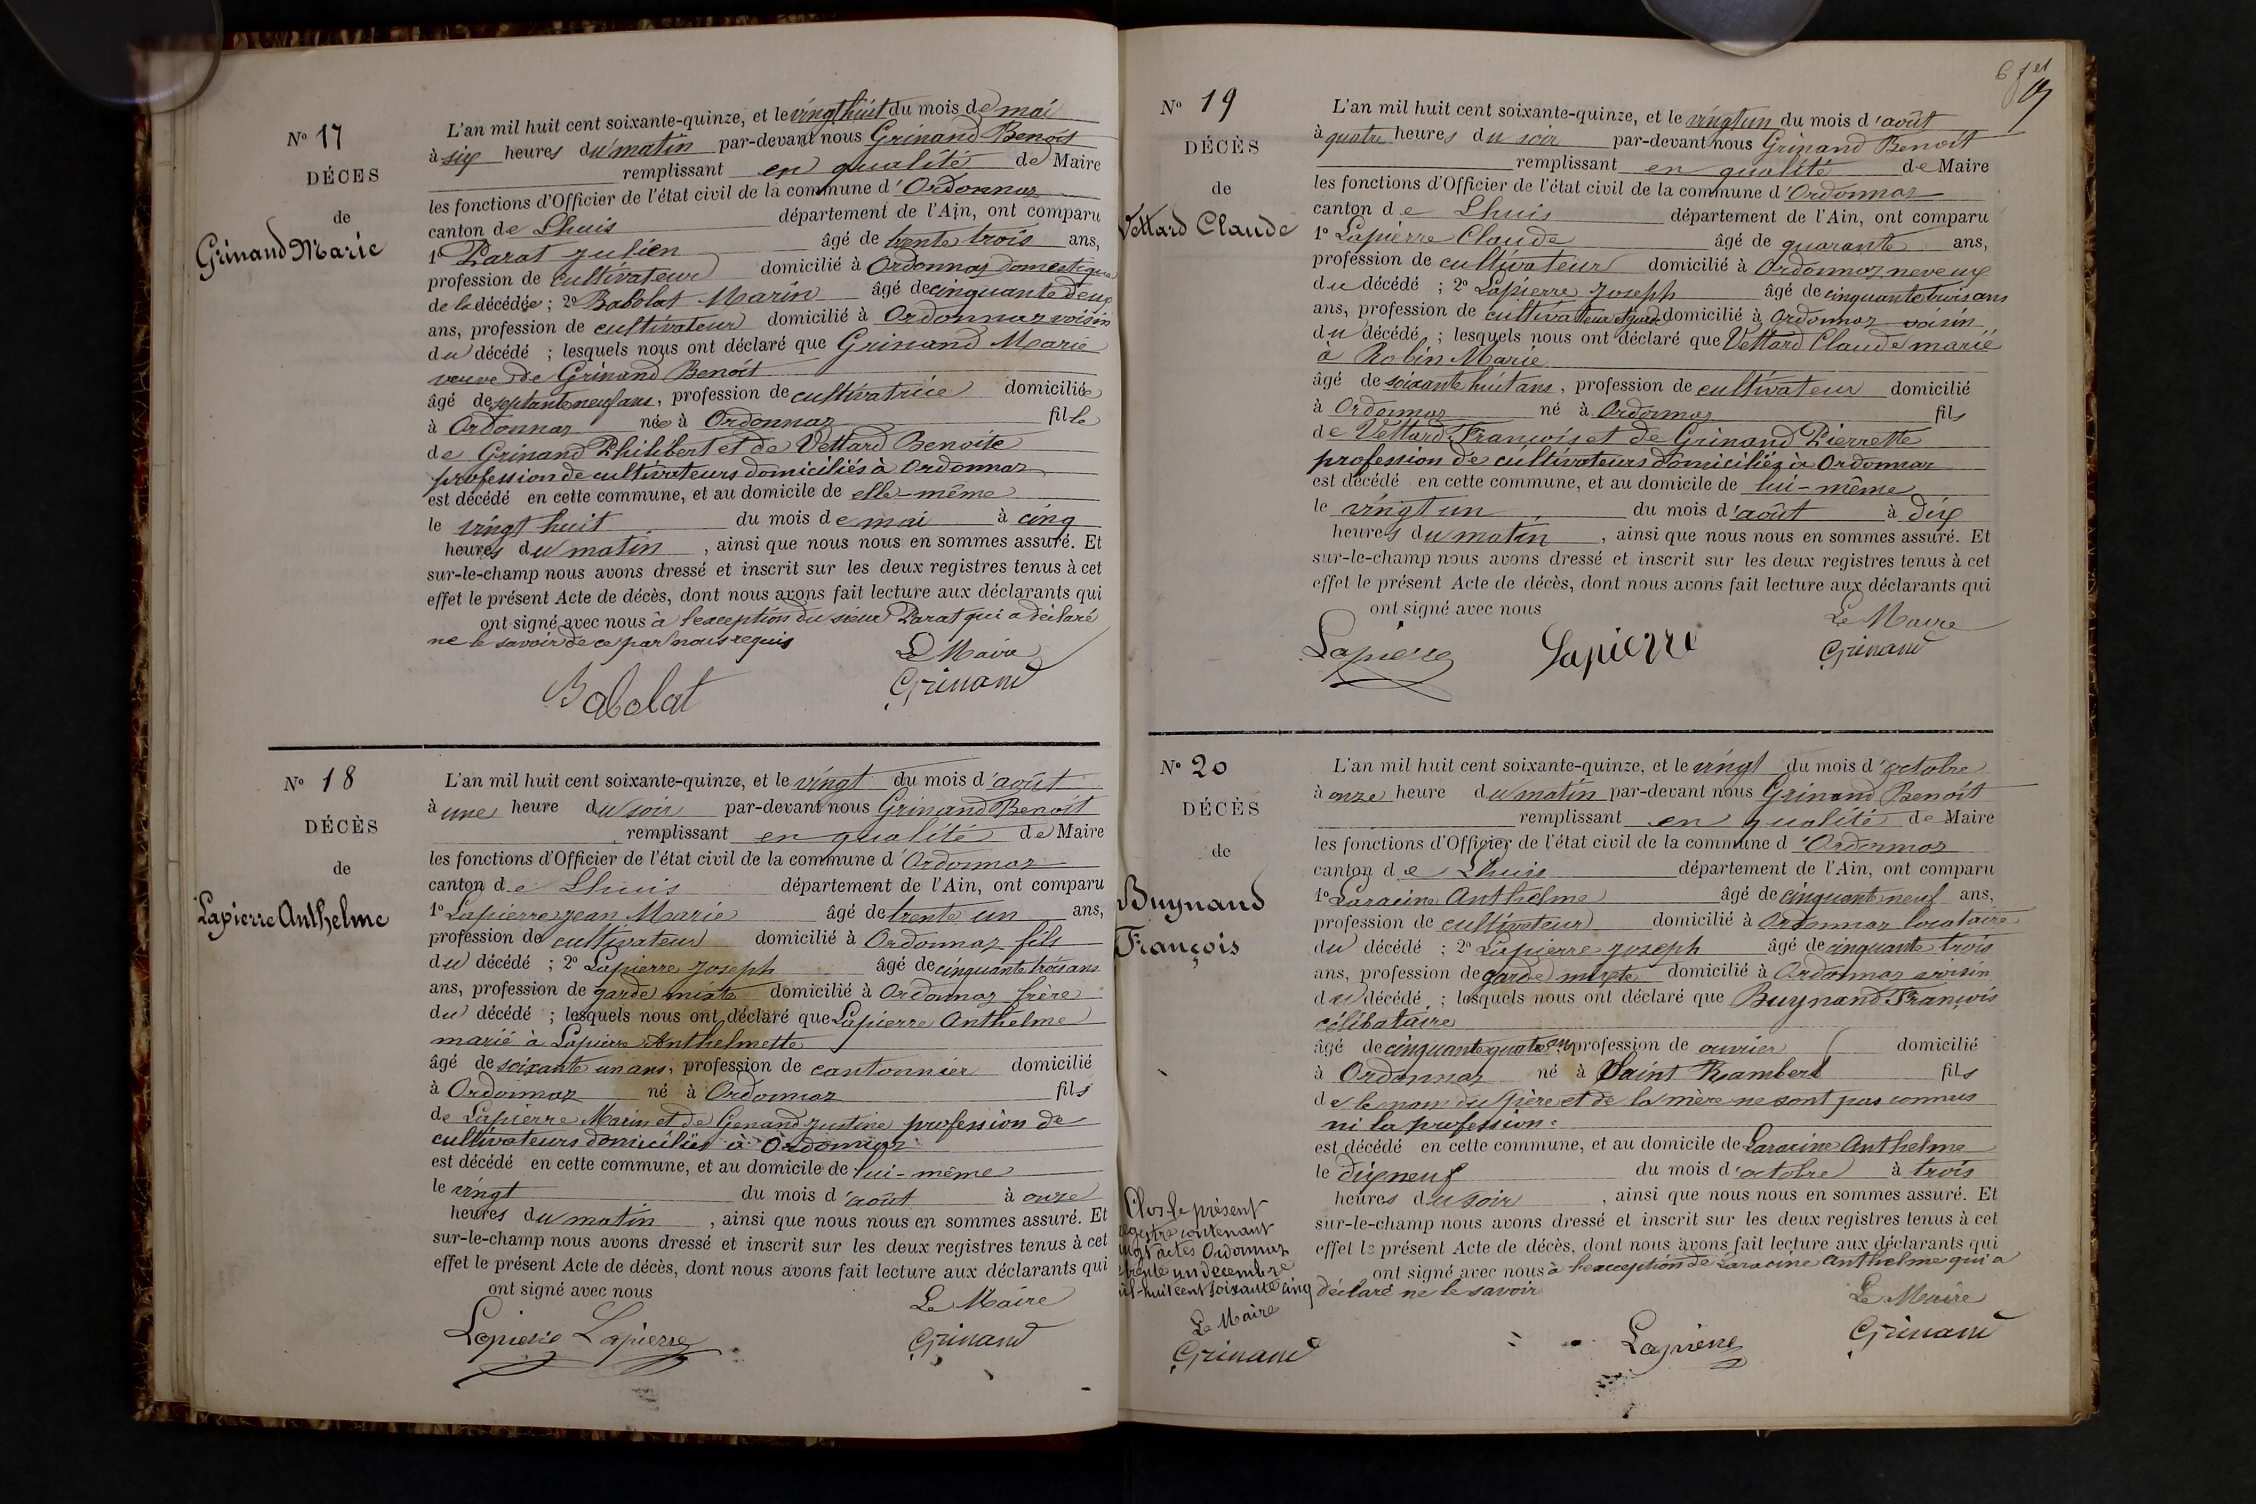 Nº 17
DÉCES
de
Grinand Marie
L'an mil huit cent soixante-quinze, et le vingt huit du mois de mai
à six heures du matin par-devant nous Grinand Benoit
remplissant en qualité de Maire
les fonctions d'Officier de l'état civil de la commune d'Ordonnaz
canton de Lhuis département de l'Ain, ont comparu
1º Parat Julien âgé de trente trois ans,
profession de cultivateur domicilié à Ordonnaz domestique
de la décédée ; 2º Babolat Marin âgé de cinquante deux
ans, profession de cultivateur domicilié à Ordonnaz voisin
du décédé ; lesquels nous ont déclaré que Grinand Marie
veuve de Grinand Benoit
âgé de septante neuf ans, profession de cultivatrice domiciliée
à Ordonnaz née à Ordonnaz fille
de Grinand Philibert et de Vettard Benoite
profession de cultivateurs domiciliés à Ordonnaz
est décédé en cette commune, et au domicile de elle-même
le vingt huit du mois de mai à cinq
heures du matin , ainsi que nous nous en sommes assuré. Et
sur-le-champ nous avons dressé et inscrit sur les deux registres tenus à cet
effet le présent Acte de décès, dont nous avons fait lecture aux déclarants qui
ont signé avec nous à l'exception du sieur Parat qui a déclaré
ne le savoir de ce par nous requis
Le Maire
Babolat Grinand
Nº 18
DÉCÈS
de
Lapierre Anthelme
L'an mil huit cent soixante-quinze, et le vingt du mois d'août
à une heure du soir par-devant nous Grinand Benoit
remplissant en qualité de Maire
les fonctions d'Officier de l'état civil de la commune d'Ordonnaz
canton de Lhuis département de l'Ain, ont comparu
1º Lapierre Jean Marie âgé de trente un ans,
profession de cultivateur domicilié à Ordonnaz fils
du décédé ; 2º Lapierre Joseph âgé de cinquante trois ans
ans, profession de garde mixte domicilié à Ordonnaz frère
du décédé ; lesquels nous ont déclaré que Lapierre Anthelme
marié à Lapierre Anthelmette
âgé de soixante un ans, profession de cantonnier domicilié
à Ordonnaz né à Ordonnaz fils
de Lapierre Marin et de Genand Justine profession de
cultivateurs domiciliés à Ordonnaz
est décédé en cette commune, et au domicile de lui-même
le vingt du mois d'août à onze
heures du matin , ainsi que nous nous en sommes assuré. Et
sur-le-champ nous avons dressé et inscrit sur les deux registres tenus à cet
effet le présent Acte de décès, dont nous avons fait lecture aux déclarants qui
ont signé avec nous
Le Maire
Lapierre Lapierre Grinand
Nº 19
DÉCÈS
de
Vettard Claude
L'an mil huit cent soixante-quinze, et le vingt un du mois d'août
à quatre heures du soir par-devant nous Grinand Benoit
remplissant en qualité de Maire
les fonctions d'Officier de l'état civil de la commune d'Ordonnaz
canton de Lhuis département de l'Ain, ont comparu
1º Lapierre Claude âgé de quarante ans,
profession de cultivateur domicilié à Ordonnaz neveux
du décédé ; 2º Lapierre Joseph âgé de cinquante trois ans
ans, profession de cultivateur domicilié à Ordonnaz voisin
du décédé ; lesquels nous ont déclaré que Vettard Claude marié
à Robin Marie
âgé de soixante huit ans, profession de cultivateur domicilié
à Ordonnaz né à Ordonnaz fils
de Vettard François et de Grinand Pierrette
profession de cultivateurs domiciliés à Ordonnaz
est décédé en cette commune, et au domicile de lui-même
le vingt un du mois d'août à dix
heures du matin , ainsi que nous nous en sommes assuré. Et
sur-le-champ nous avons dressé et inscrit sur les deux registres tenus à cet
effet le présent Acte de décès, dont nous avons fait lecture aux déclarants qui
ont signé avec nous
Le Maire
Lapierre Lapierre Grinand
Nº 20
DÉCÈS
de
Buynand
François
L'an mil huit cent soixante-quinze, et le vingt du mois d'octobre
à onze heure du matin par-devant nous Grinand Benoit
remplissant en qualité de Maire
les fonctions d'Officier de l'état civil de la commune d'Ordonnaz
canton de Lhuis département de l'Ain, ont comparu
1º Laracine Anthelme âgé de cinquante neuf ans,
profession de cultivateur domicilié à Ordonnaz locataire
du décédé ; 2º Lapierre Joseph âgé de cinquante trois
ans, profession de garde mixte domicilié à Ordonnaz voisin
du décédé ; lesquels nous ont déclaré que Buynand François
célibataire
âgé de cinquante quatre ans profession de ouvrier domicilié
à Ordonnaz né à Saint Rambert fils
de le nom du père et de la mère ne sont pas connus
ni la profession.
est décédé en cette commune, et au domicile de Laracine Anthelme
le dix neuf du mois d'octobre à trois
heures du soir , ainsi que nous nous en sommes assuré. Et
sur-le-champ nous avons dressé et inscrit sur les deux registres tenus à cet
effet le présent Acte de décès, dont nous avons fait lecture aux déclarants qui
ont signé avec nous à l'exception de Laracine Anthelme qui a
déclaré ne le savoir
Le Maire
Lapierre Grinand
Clos le présent
registre contenant
vingt actes Ordonnaz
trente un décembre
mil-huit cent soixante cinq
Le Maire
Grinand